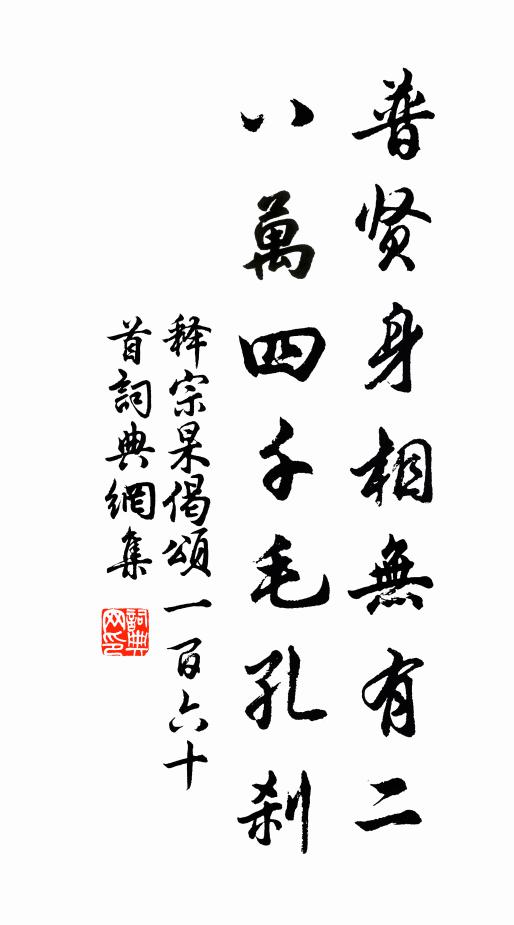 普贤身相無有二
八萬四千毛孔刹
释宗杲偈頌一百六十
首詞典網集
詞典
网印